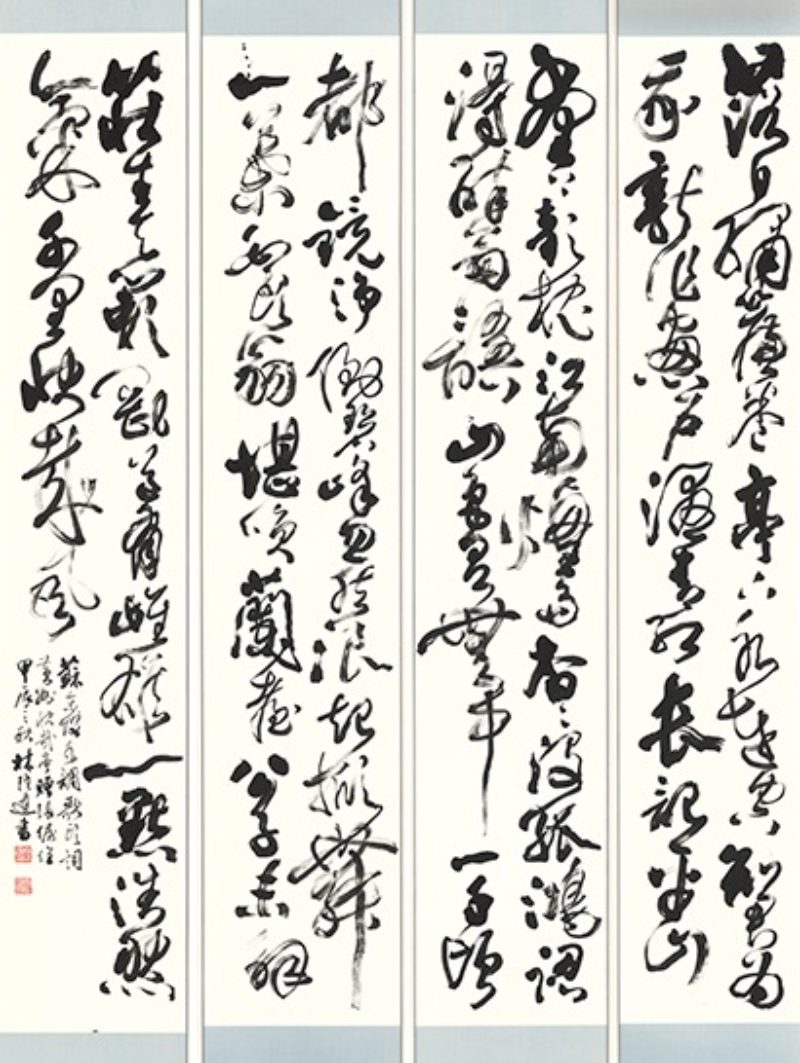 落日繡簾捲亭下水連空知君為
我新作窗戶濕青紅長記平山
堂上欹枕江南煙雨杳杳沒孤鴻認
得醉翁語山色有無中一千頃
都鏡淨倒碧峰忽然浪起掀舞
一葉白頭翁堪笑蘭臺公子未解
莊生天籟剛道有雌雄一點浩然
氣千里快哉風
蘇東坡水調歌頭詞
黃州快哉亭贈張偓佺
甲辰之秋林隆達書